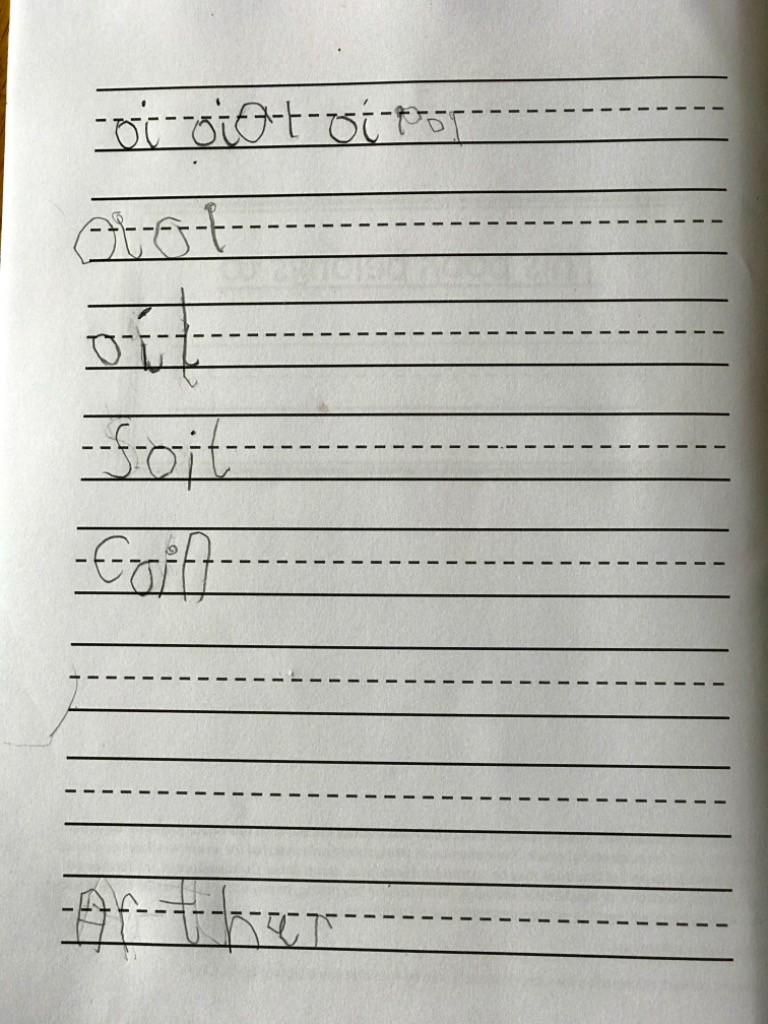 oi oiot oi por
oiot
oil
foil
coin
Arther